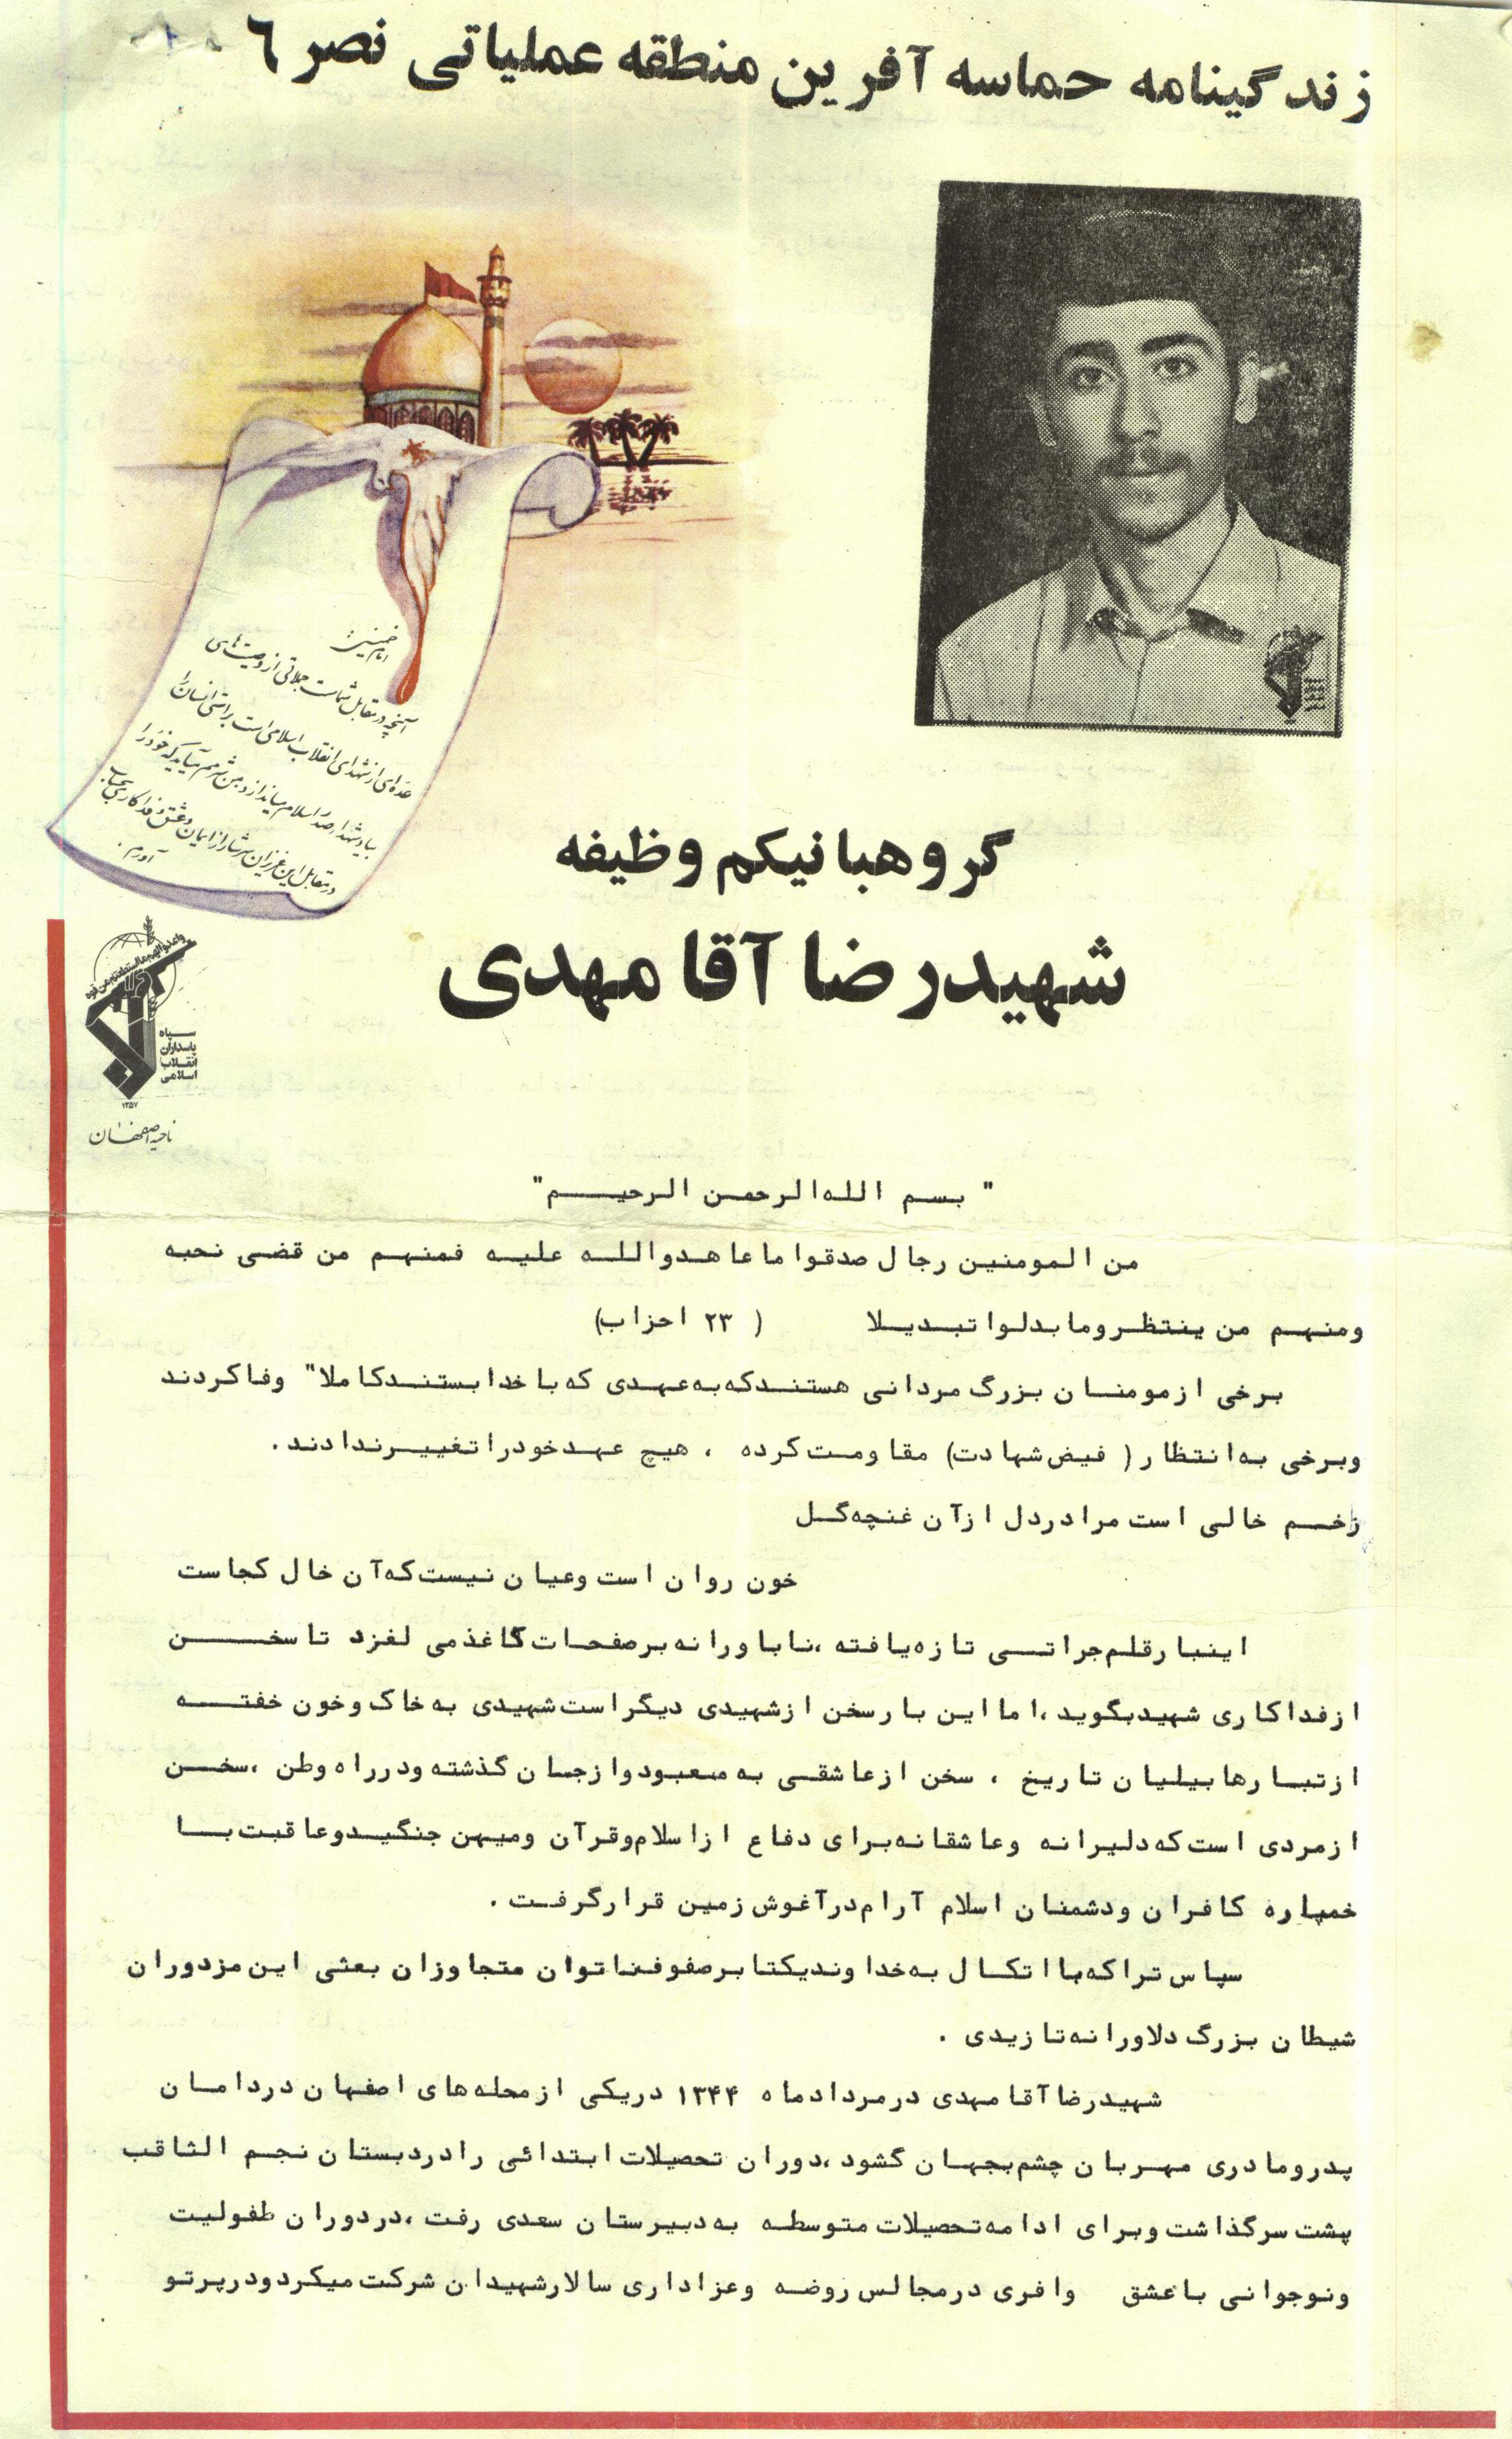 زندگینامه حماسه آفرین منطقه عملیاتی نصر ٦
امام خمینی
آنچه در مقابل شماست جملاتی از وصیت‌های
عده‌ای از شهدای انقلاب اسلامی است براستی انسان را
بیاد شهدا صدر اسلام میاندازد و من شرمم میآید که خود را
در مقابل این عزیزان سرشار از ایمان و عشق و فداکاری بحساب
آورم.
گروهبانیکم وظیفه
شهیدرضا آقا مهدی
سپاه
پاسداران
انقلاب
اسلامی
۱۳۵۷
ناحیه اصفهان
" بسم الله الرحمن الرحیم"
من المومنین رجال صدقوا ما عاهدوالله علیه فمنهم من قضی نحبه
ومنهم من ینتظر وما بدلوا تبدیلا ( ۲۳ احزاب)
برخی ازمومنان بزرگ مردانی هستندکه به عهدی که با خدا بستندکاملا" وفاکردند
وبرخی به انتظار ( فیض شهادت) مقاومت کرده ، هیچ عهدخودرا تغییرندادند .
زخم خالی است مرا دردل ازآن غنچه گل
خون روان است وعیان نیست که آن خال کجاست
اینبار قلم جراتی تازه یافته ،ناباورانه برصفحات کاغذمی لغزد تا سخن
ازفداکاری شهیدبگوید ،اما این بار سخن ازشهیدی دیگراست شهیدی به خاک وخون خفته
ازتبار هابیلیان تاریخ ، سخن ازعاشقی به معبودو ازجان گذشته ودرراه وطن ،سخن
ازمردی است که دلیرانه وعاشقانه برای دفاع ازاسلام وقرآن ومیهن جنگیدوعاقبت با
خمپاره کافران ودشمنان اسلام آرام درآغوش زمین قرارگرفت .
سپاس تراکه با اتکال به خداوندیکتا برصفوف ناتوان متجاوزان بعثی این مزدوران
شیطان بزرگ دلاورانه تازیدی .
شهیدرضا آقا مهدی درمردادماه ۱۳۴۴ دریکی ازمحله های اصفهان دردامان
پدرومادری مهربان چشم بجهان گشود ،دوران تحصیلات ابتدائی رادردبستان نجم الثاقب
پشت سرگذاشت وبرای ادامه تحصیلات متوسطه به دبیرستان سعدی رفت ،دردوران طفولیت
ونوجوانی باعشق وافری درمجالس روضه وعزاداری سالارشهیدان شرکت میکردودرپرتو